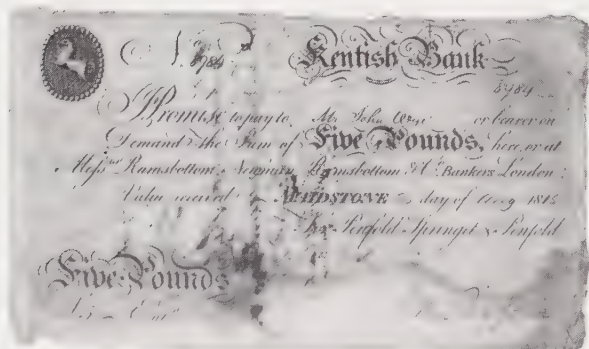 N. 8984 Kentish Bank
8984
I Promise to pay to Mr. John or bearer on
Demand the Sum of Five Pounds, here, or at
Messrs Ramsbottom, Newman, Ramsbottom & Co. Bankers London:
Value received MAIDSTONE day of 1815
For Penfold Springet & Penfold
Five Pounds